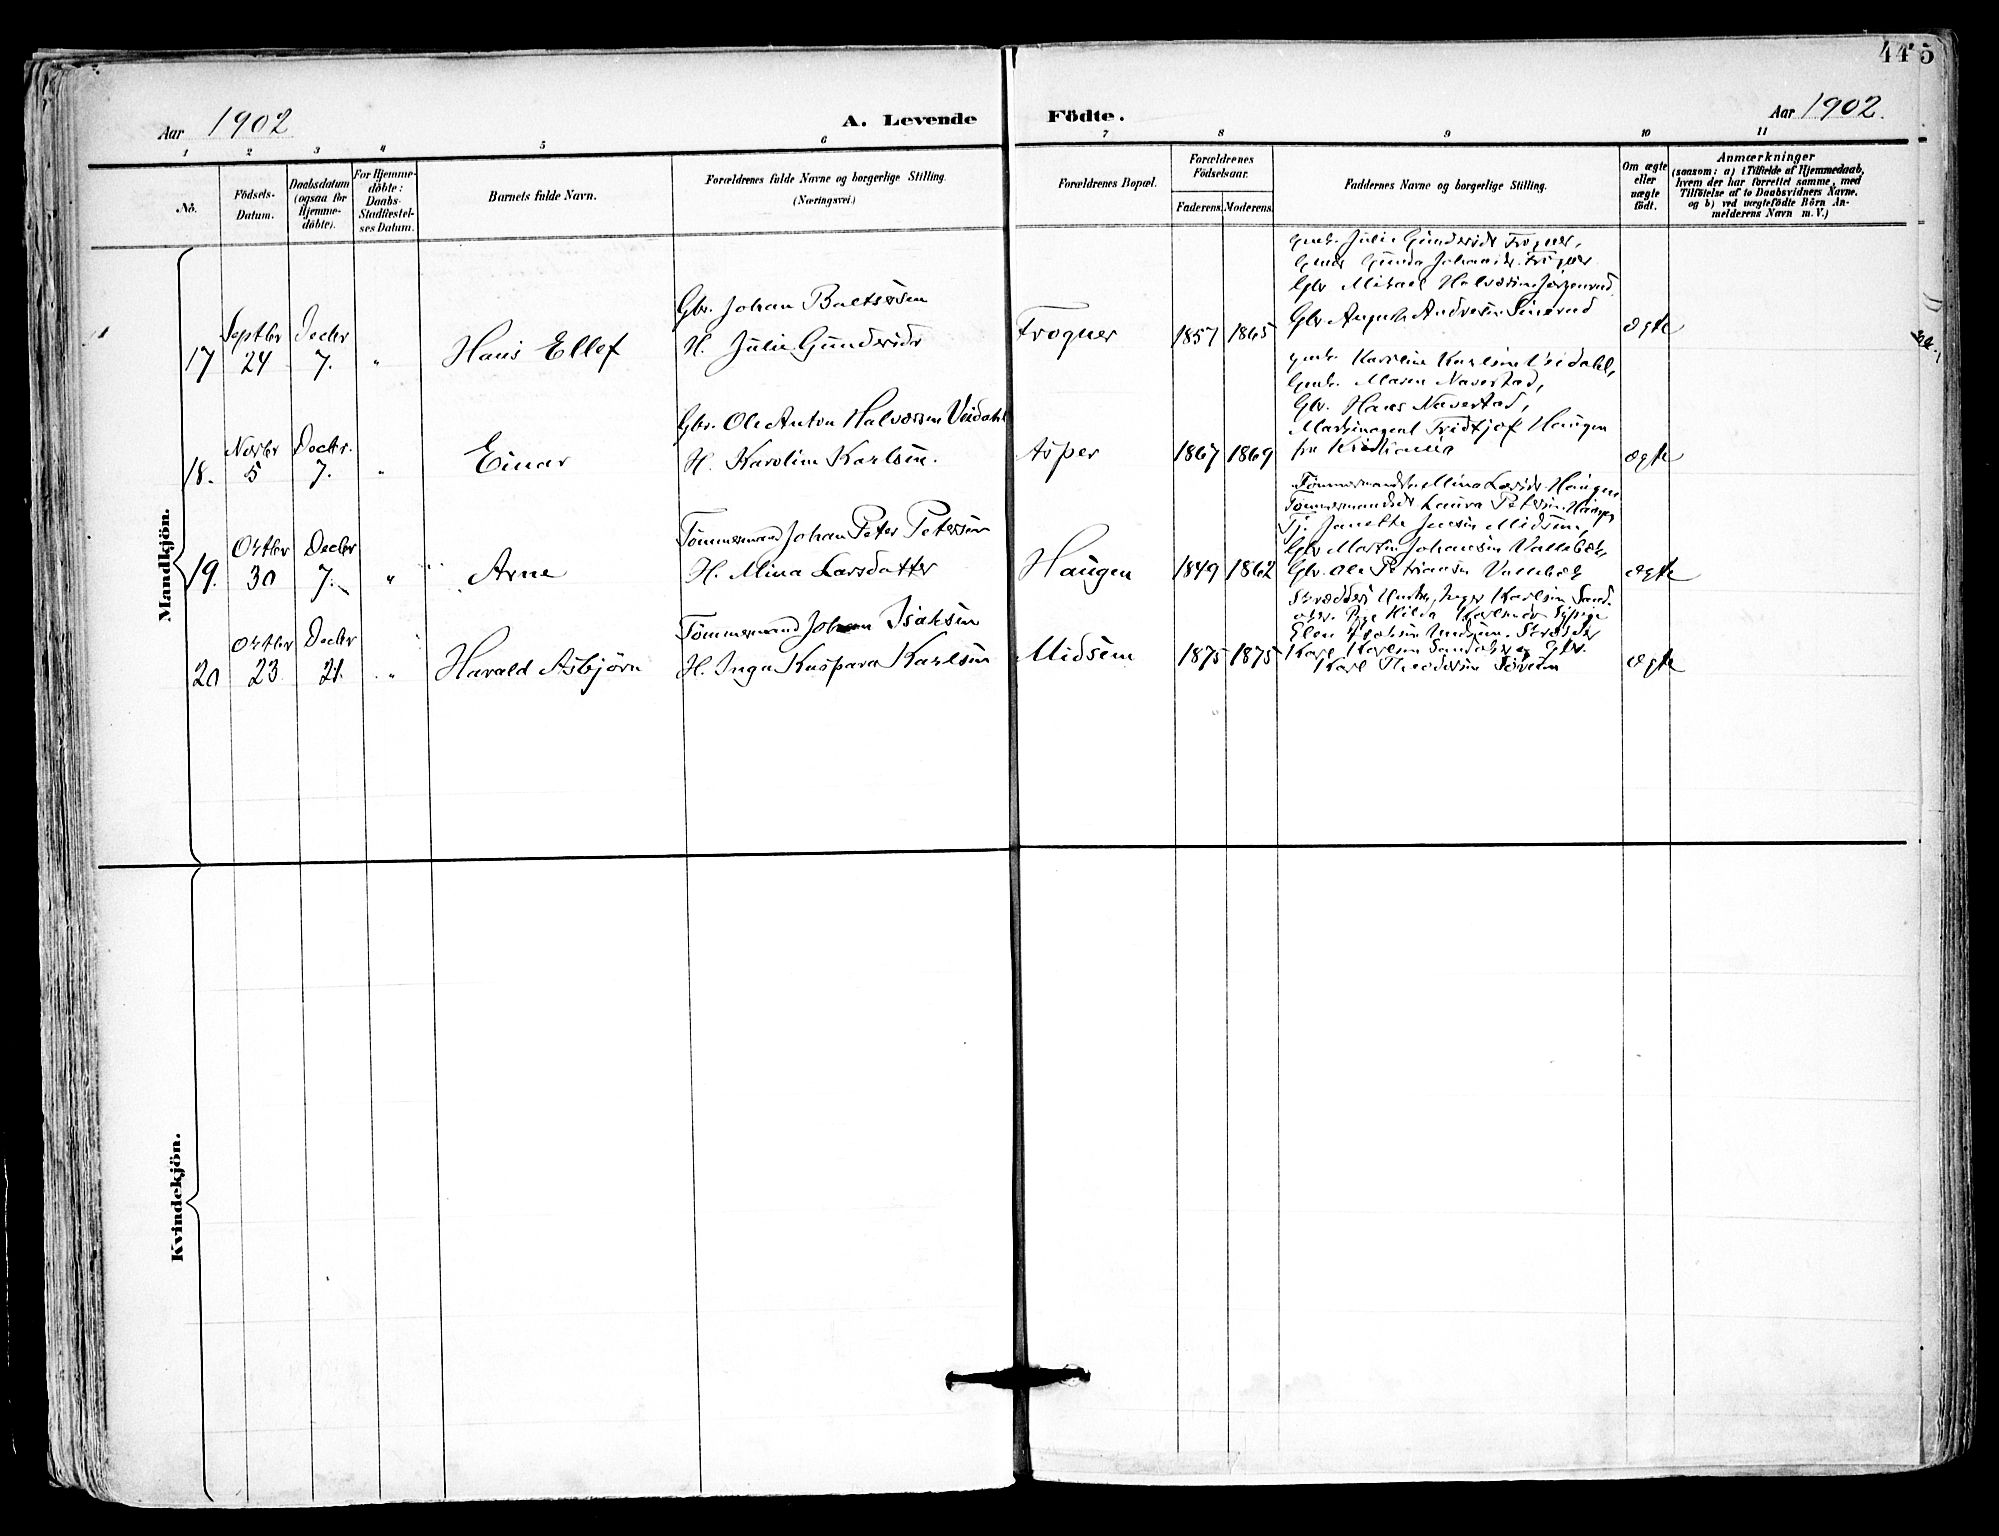 445
Aar 1902
A. Levende Födte.
Aar 1902.
1 2 3 4 5 6 7 8 9 10 11
No.
Födsels-Datum.
Daabsdatum (ogsaa for Hjemme-döbte).
For Hjemme-döbte: Daabs-Stadfæstel-ses Datum.
Barnets fulde Navn.
Forældrenes fulde Navne og borgerlige Stilling.
(Næringsvei.)
Forældrenes Bopæl.
Forældrenes Fødselsaar.
Faderens. Moderens.
Faddernes Navne og borgerlige Stilling.
Om ægte eller uægte födt.
Anmærkninger
(saasom: a) i Tilfælde af Hjemmedaab,
hvem der har forrettet samme, med
Tilföielse af to Daabsvidners Navne.
og b) ved uægtefödte Börn An-
melderens Navn m. V.)
Mandkjön.
17 Septbr 24 Decbr 7. " Hans Ellef
Gbr. Johan Baltsersen
H. Julie Gundersdr
Frogner 1857 1865
Gmk. Julie Gundersdr Frogner,
Gunda Johansdr. Frogner
Gbr Mikael Halvorsen
Gbr August Andresen
ægte
18. Novbr 5 Decbr. 7. " Einar
Gbr. Ole Anton Halvorsen Veidahl
H. Karoline Karlsen.
Asper 1867 1869
Gmk. Karoline Karlsen Veidahl,
Gmk. Maren Naverstad,
Gbr. Hans Naverstad,
Maskinagent Fridtjof Haugen
fra Kristiania
ægte
19. Oktbr 30 Decbr 7. " Arne
Tømmermand Johan Peter Petersen
H. Mina Larsdatter
Haugen 1849 1862
Mina Larsdr. Haugen
Laura Petersen Haugen
Tj. Janette Jensen Midsem,
Gbr Martin Johansen Vallebæk
Gbr. Ole Petersen Vallebæk
ægte
20 Oktbr 23 Decbr 21. " Harald Asbjørn
Tømmermand Johan Isaksen
H. Inga Kaspara Karlsen
Midsem 1875 1875
Inger Karlsen Sand-
aker. Pige Hilda Karlsen
Elen Isaksen Midsem. Skrædder
Karl Karlsen Sandaker og Gbr.
Karl Theodorsen
ægte
Kvindekjön.